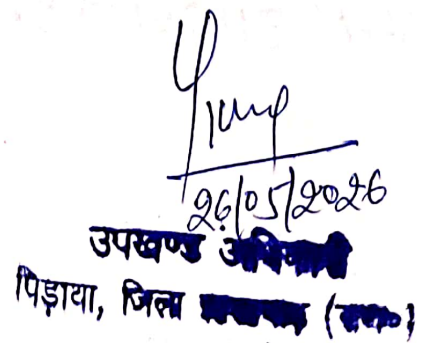 26/05/2026
उपखण्ड अधिकारी
पिड़ावा, जिला (राज०)